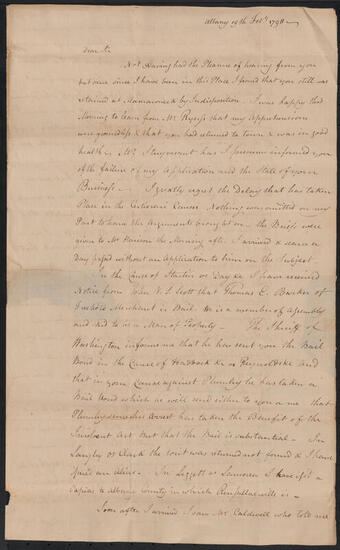 Albany 19th Feby 1798
dear Sir
Not having had the Pleasure of hearing from you
but once since I have been in this Place I feared that you still was
detained at Mamaroneck by Indisposition. I was happy this
Morning to learn from Mr. Ryerss that my Apprehensions
were groundless & that you had returned to town & was in good
health. Mr. Stuyvesant has I presume informed you
of the failure of my Application and the State of your
Business. I greatly regret the Delay that has taken
Place in the Certiorari Causes. Nothing was omitted on my
Part to have the Arguments brought on. The Briefs were
given to Mr Harison the Morning after I arrived & scarce a
Day passed without an Application to him on the Subject.
In the Cause of Startin vs Day &c I have received
Notice from John V. L. Scott that Thomas E. Barker of
Merchant is Bail. He is a member of Assembly
and said to be a Man of Property. The Sheriff of
Washington informs me that he has sent you the Bail
Bond in the Cause of &c vs Reynolds &c and
that in your Cause against Plumley he has taken a
Bail Bond which he will send either to you or me that
Plumley since his Arrest has taken the Benefit of the
Insolvent Act But that the Bail is substantial. In
Langley vs Clark the Court was returned not found & I have
issued an Alias. In Leggett vs Lamoree I have issd a
Capias to Albany County in which Rensselaerville is.
Soon after I arrived I saw Mr. Caldwell who told me